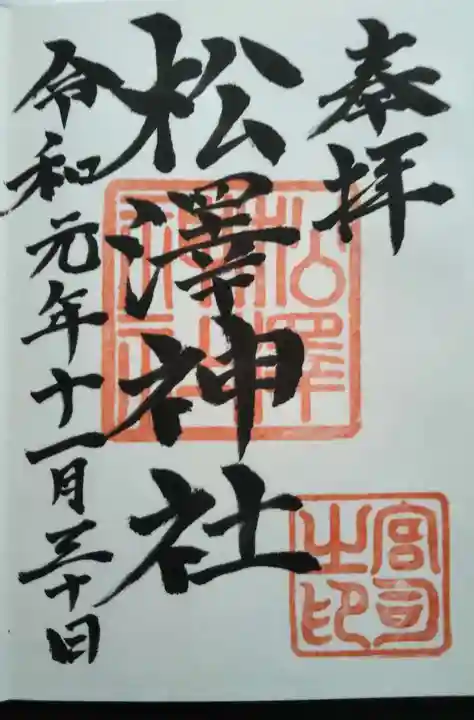 奉拝
松澤神社
松澤神社
宮司之印
令和元年十一月三十日